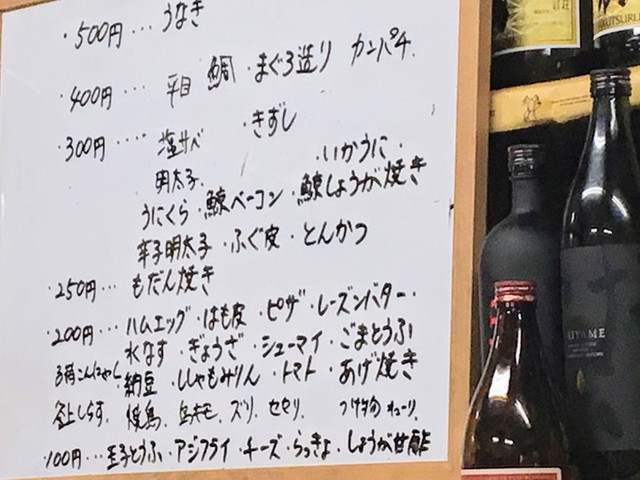 ・500円… うなぎ
・400円… 平目 鯛・まぐろ造り カンパチ.
・300円…‥ 塩サバ ・きずし
明太子. ・いかうに・
うにくら・鯨ベーコン・鯨しょうが焼き
辛子明太子・ふぐ皮・とんかつ
・250円… もだん焼き
・200円… ハムエッグ・はも皮・ピザ・レーズンバター・
水なす・ぎょうざ・シューマイ・ごまとうふ
こんにゃく 納豆・ししゃもみりん・トマト・あげ焼き
釜上しらす. 焼鳥. 鳥キモ. ズリ. セセリ.
・100円… 玉子とうふ・アジフライ・チーズ・らっきょ・しょうが甘酢
IYAME